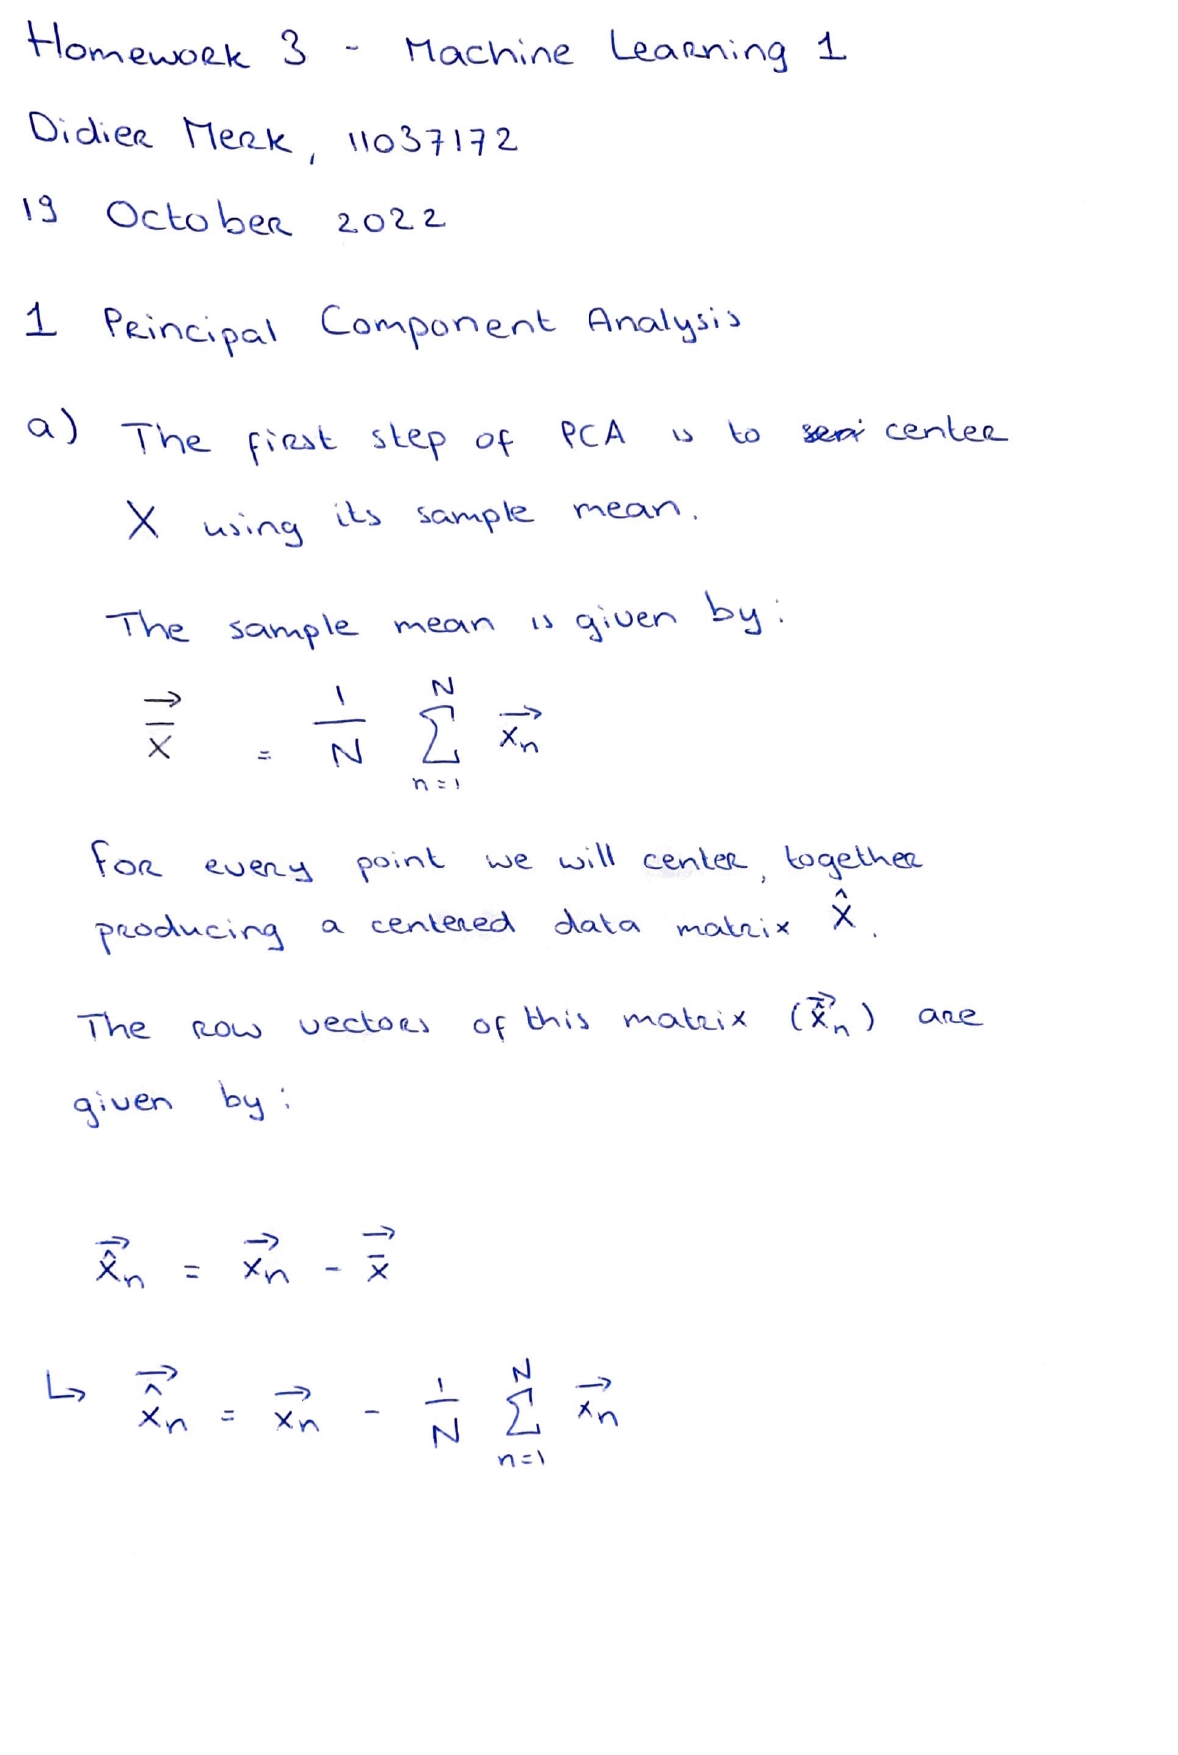 Homework 3 - Machine Learning 1
Didier Merk, 11037172
19 October 2022
1 Principal Component Analysis
a) The first step of PCA is to center
X using its sample mean.
The sample mean is given by:
$\vec{\bar{x}} = \frac{1}{N} \sum_{n=1}^{N} \vec{x_n}$
For every point we will center, together
producing a centered data matrix $\hat{X}$.
The row vectors of this matrix ($\vec{\hat{x}}_n$) are
given by:
$\vec{\hat{x}}_n = \vec{x_n} - \vec{\bar{x}}$
↳ $\vec{\hat{x}_n} = \vec{x_n} - \frac{1}{N} \sum_{n=1}^{N} \vec{x_n}$